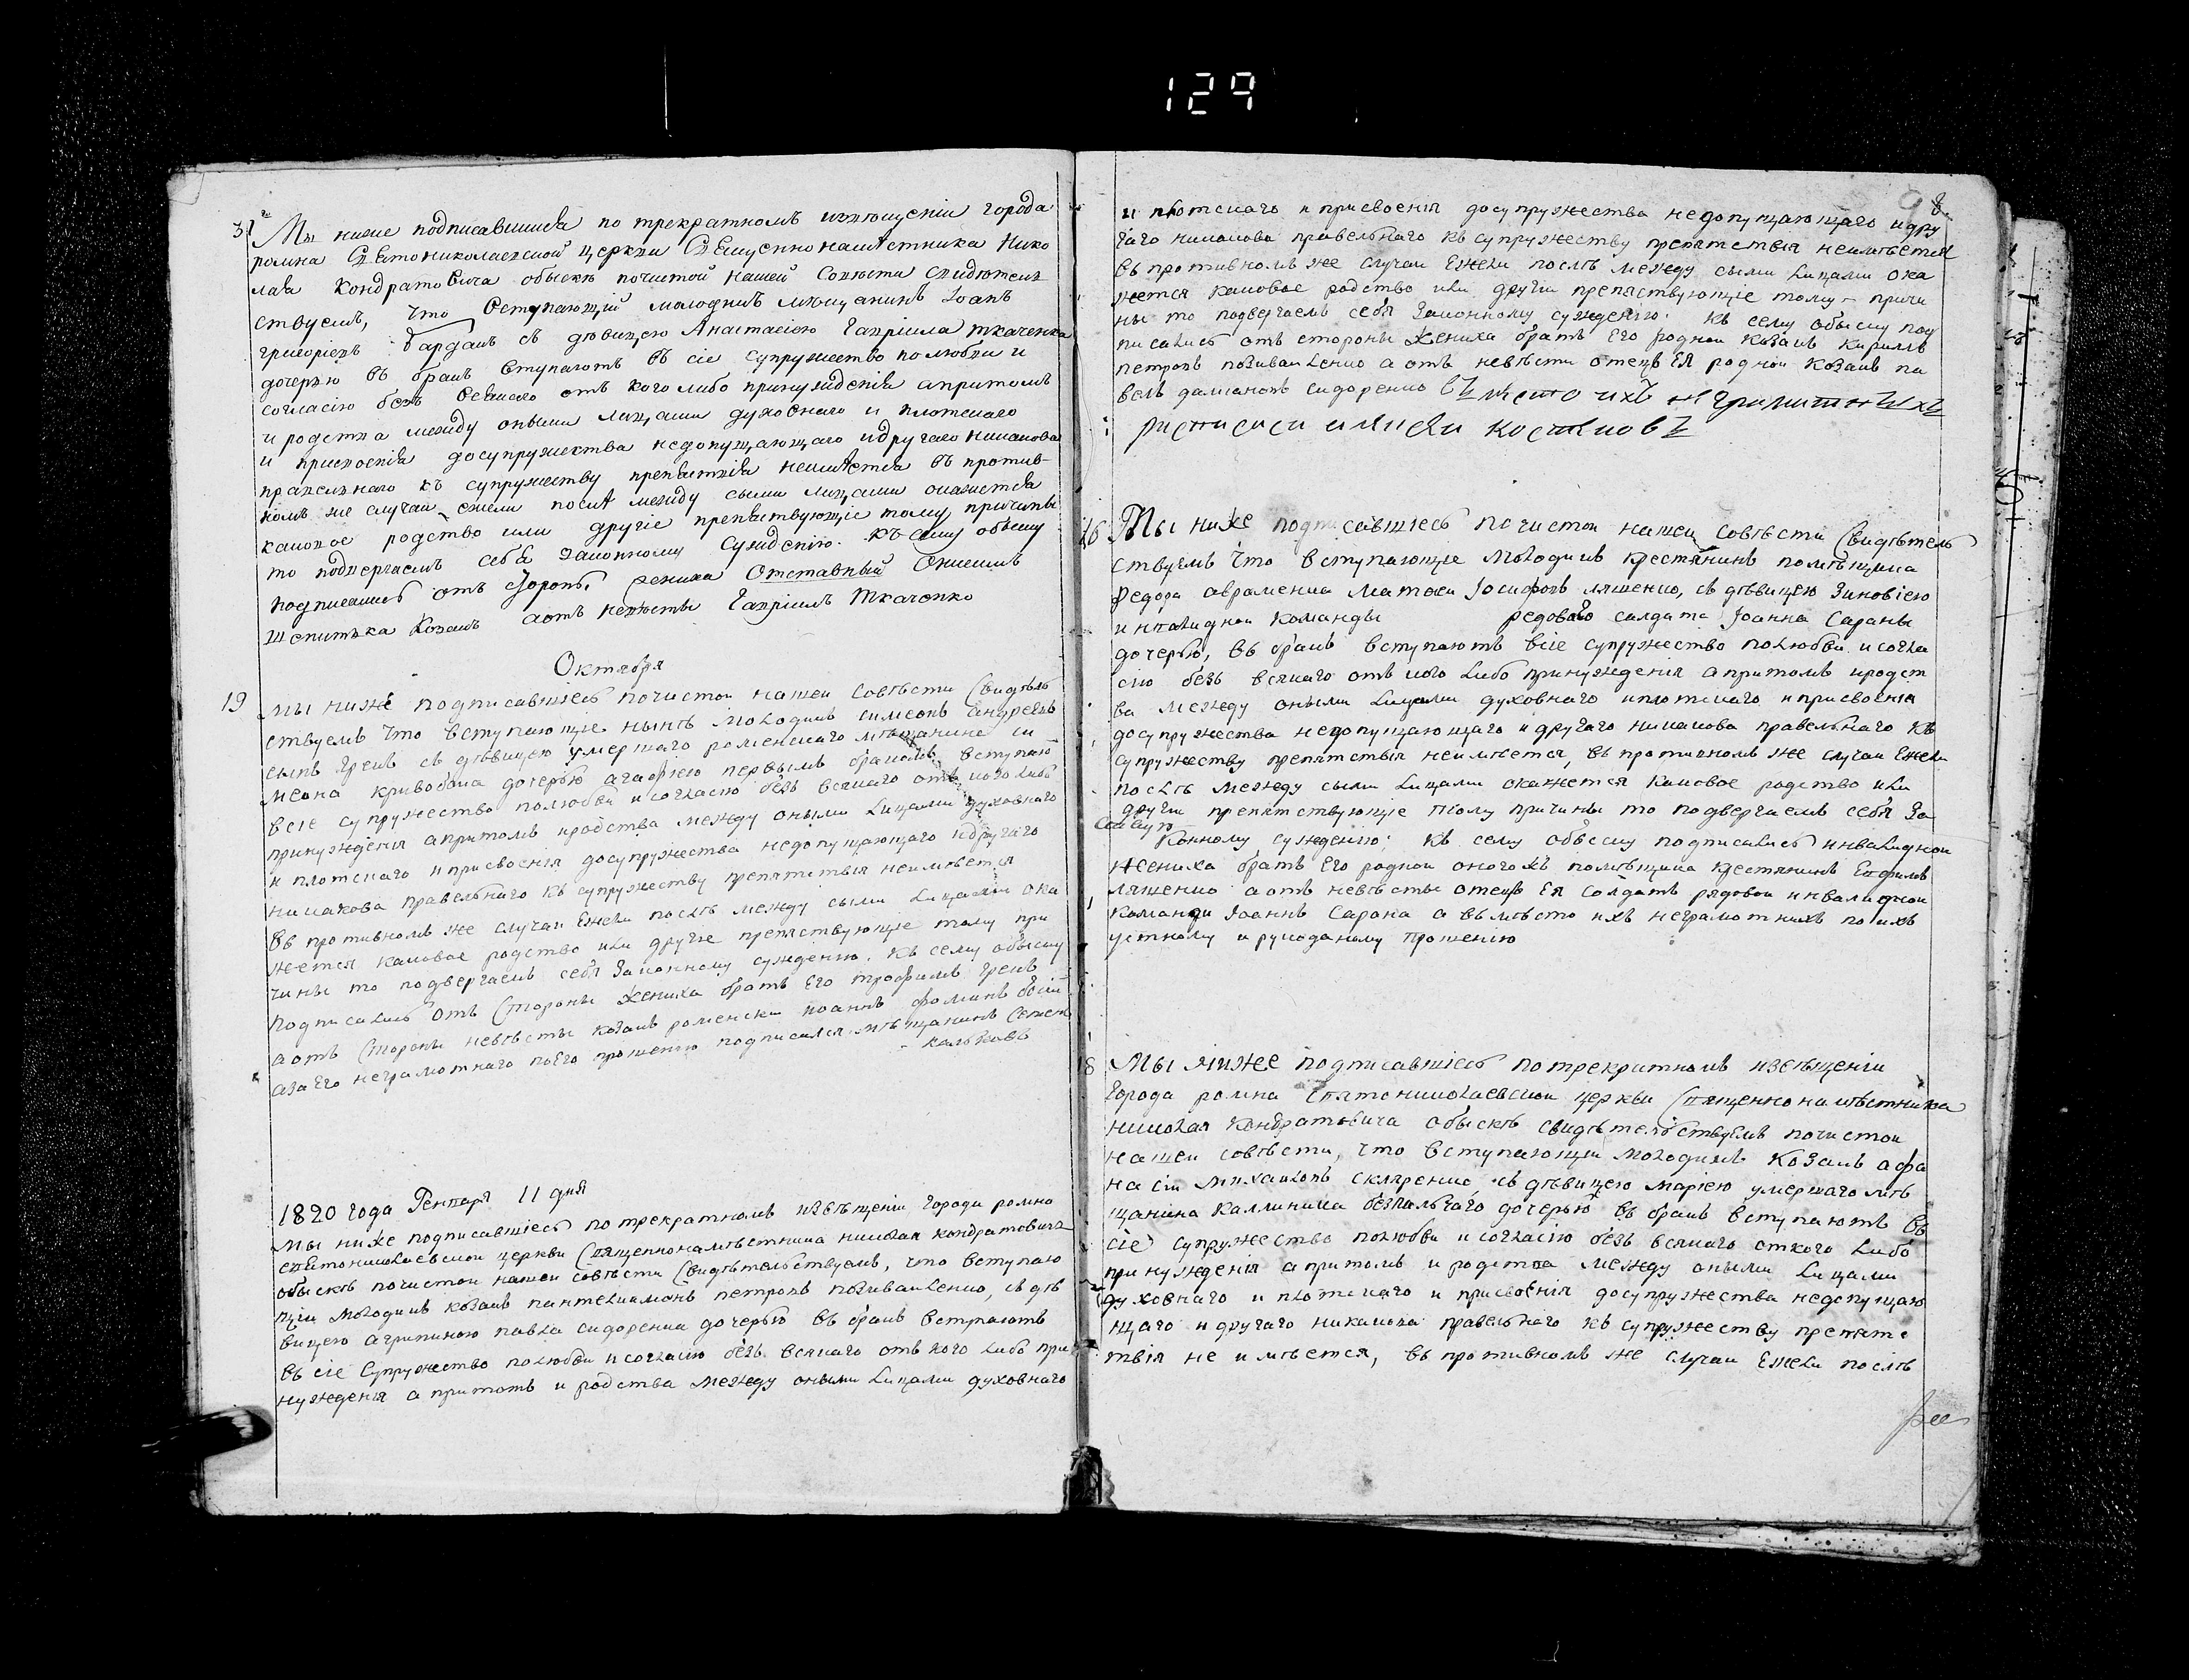 129
31го Мы ниже подписавшиися по трекратномъ извѣщеніи города
ромна Святониколаевской церкви Священнонамѣстника Нико
лая Кондратовича обыскѣ почистой нашей совѣсти свидѣтель
ствуемъ, что вступающій молодикъ мѣщанинъ Іоанъ
григоріевъ Бардакъ съ дѣвицею Анастасіею Гавріила ткаченка
дочерью въ бракъ вступаютъ въ сіе супружество полюбви и
согласію безъ всякаго отъ кого либо принужденія апритомъ
и родства между оными лицами духовнаго и плотскаго
и присвоенія досупружества недопущающаго идругаго никакова
правелнаго къ супружеству препятствія неимѣется въ против-
номъ же случаи ежели послѣ между сыми лицами окажется
каковое родство или другіе препятствующіе тому причины
то подвергаемъ себя законному сужденію. къ сему обыску
подписались отъ стороны жениха Отставный Онисимъ
Шепитька Козакъ аотъ невѣсты Гавріилъ Ткаченко
Октября
19 Мы ниже подписавшіесь почистои нашеи совѣсти свидѣтель
ствуемъ что вступающие нынѣ молодикъ симеонъ андреевъ
сынъ грекъ съ дѣвицею умершаго роменскаго мѣщанина си
меона кривобока дочерью агафіею первымъ бракомъ вступаю
всіе супружество полюбви исогласію безъ всякаго отъ кого либо
принужденія апритомъ иродства между оными лицами духовнаго
и плотскаго иприсвоенія досупружества недопущающаго идругаго
никакова правельнаго къ супружеству препятствія неимѣется
въ противномъ же случаи ежели послѣ между сыми лицами ока
жется каковое родство или другіе препятствующіе тому при
чины то подвергаемъ себя законному сужденію. къ сему обыску
подписались отъ стороны жениха братъ его трофимъ грекъ
аотъ стороны невѣсты козакъ роменски иоаннъ фоминъ
аза его неграмотнаго поего прошенію подписался мѣщанинъ
1820 года Генваря 11 дня
Мы ниже подписавшіесь потрекратномъ извѣщеніи города ромна
святониколаевскои церкви священнонамѣстника николая кондратовича
обыскѣ почистои нашеи совѣсти свидѣтельствуемъ, что вступаю
щіи молодикъ козакъ пантелиимонъ петровъ поливаленко, съ дѣ
вицею агрипиною павла сидоренка дочерью въ бракъ вступаютъ
въ сіе супружество полюбви исогласію безъ всякаго отъ кого либо при
нужденія апритомъ и родства между оными лицами духовнаго
8.
и плотскаго и присвоенія досупружества недопущающаго идру
гаго никакова правельнаго къ супружеству препятствія неимѣется
въ противномъ же случаи ежели послѣ между сыми лицами ока
жется каковое родство или другіи препятствующіе тому – причи
ны то подвергаемъ себя законному сужденію. къ сему обыску под
писались отъ стороны жениха братъ его роднои козакъ кирилъ
петровъ поливаленко а отъ невѣсти отецъ ея роднои козакъ па
велъ даміановъ сидоренко вместо ихъ неграмотныхъ
росписался
16 Мы ниже подписавшіесь почистои нашеи совѣсти свидѣтель
ствуемъ что вступающие молодикъ крестянинъ помѣщика
федора авраменка матвеи іосифовъ ляшенко, съ дѣвицею зиновіею
инвалиднои команды редоваго салдата Іоанна Сараны
дочерью, въ бракъ вступаютъ всіе супружество полюбви исогла
сію безъ всякаго отъ кого либо принужденія апритомъ иродст
ва между оными лицами духовнаго иплотскаго иприсвоенія
досупружества недопущающаго и другаго никакова правельнаго къ
супружеству препятствія неимѣется, въ противномъ же случаи ежели
послѣ между сыми лицами окажется каковое родство или
другіи препятствующіе тому причины то подвергаемъ себя за
конному сужденію; къ сему обыску подписались инвалиднои
жениха братъ его роднои оногожъ помѣщика крестянинъ Евфимъ
ляшенко аотъ невѣсты отецъ ея солдатъ рядовои инвалиднои
команди Іоаннъ Сарана а вымѣсто ихъ неграмотнихъ поихъ
устному и рукоданому прошенію
18 Мы ниже подписавшіесь потрекратномъ извѣщеніи
города ромна святониколаевскои церкви священнонамѣстника
николая Кондратовича обыскѣ свидѣтельствуемъ почистои
нашеи совѣсти, что вступающіи молодикъ козакъ афа
насіи михаиловъ скляренко съ дѣвицею маріею умершаго мѣ
щанина каллиника безпальчаго дочерью въ бракъ вступаютъ въ
сіе супружество полюбви исогласію безъ всякаго откого либо
принужденія апритомъ и родства между оными лицами
духовнаго и плотскаго и присвоенія досупружества недопущаю
щаго и другаго никакова правельнаго къ супружеству препятс
твія не имѣется, въ противномъ же случаи ежели послѣ